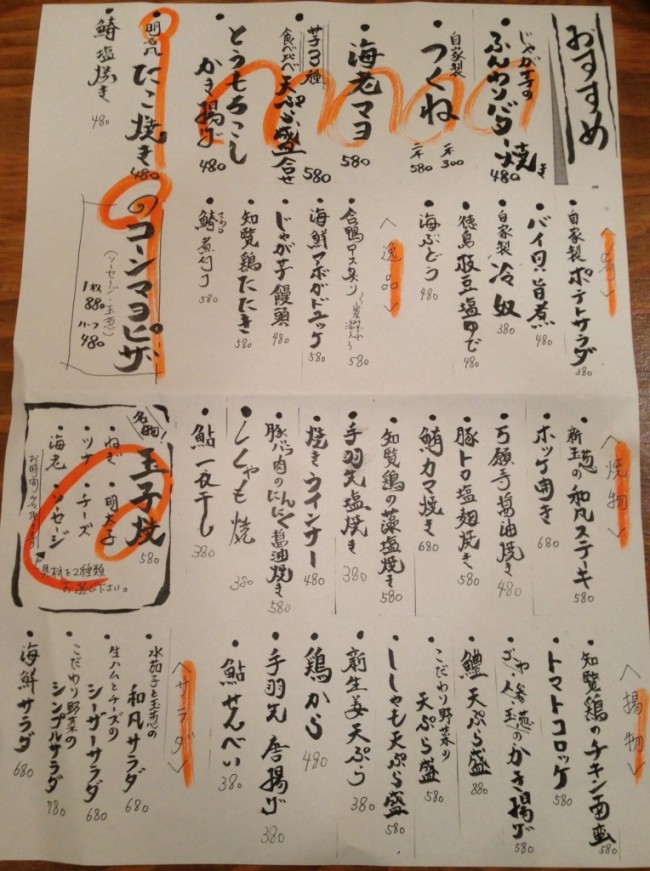 おすすめ
じゃが芋の
ふんわりバター焼き
480
自家製
つくね
一本 300
二本 580
海老マヨ
580
芋3種
食べ比べ天ぷら盛合せ
580
とうもろこし
かき揚げ
480
明石風たこ焼き
480
鰆塩焼き
480
自家製ポテトサラダ
380
バイ貝旨煮
480
自家製冷奴
380
徳島枝豆塩ゆで
480
海ぶどう
480
〈逸品〉
合鴨ロース炙り
580
海鮮アボガドユッケ
580
じゃが芋饅頭
480
知覧鶏たたき
580
鰆煮付け
580
コーンマヨピザ
(ソーセージ・玉葱)
1枚
880
ハーフ
480
〈焼物〉
新玉葱の和風ステーキ
580
ホッケ開き
680
万願寺醤油焼き
480
豚トロ塩麹焼き
580
鮪カマ焼き
680
知覧鶏の藻塩焼き
580
手羽先塩焼き
380
焼きウインナー
480
豚バラ肉のにんにく醤油焼き
580
ししゃも焼
380
鮎一夜干し
380
名物!
玉子焼
580
ねぎ
明太子
ツナ
チーズ
海老
ソーセージ
〈揚物〉
知覧鶏のチキン南蛮
580
トマトコロッケ
580
ごぼう・人参・玉葱のかき揚げ
580
鱧天ぷら盛
880
こだわり野菜の
天ぷら盛
580
ししゃも天ぷら盛
580
新生姜天ぷら
380
鶏から
480
手羽先唐揚げ
380
鮎せんべい
380
〈サラダ〉
水茄子と玉葱の
和風サラダ
680
生ハムとチーズの
シーザーサラダ
680
こだわり野菜の
シンプルサラダ
780
海鮮サラダ
680